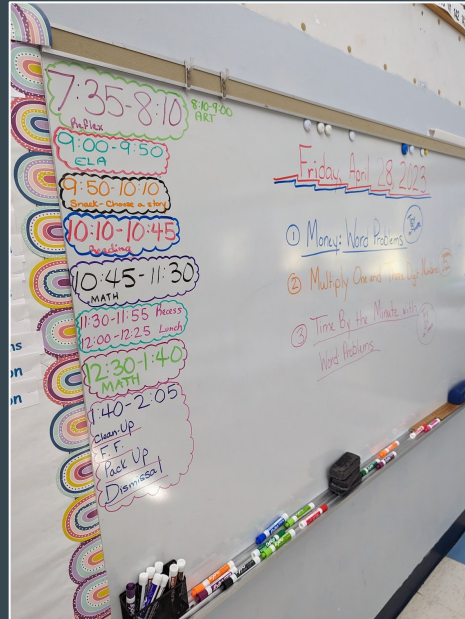 7:35-8:10
Reflex
8:10-9:00
ART
9:00-9:50
ELA
9:50-10:10
Snack-Choose a story
10:10-10:45
Reading
10:45-11:30
MATH
11:30-11:55 Recess
12:00-12:25 Lunch
12:30-1:40
MATH
1:40-2:05
Clean-Up
F.F.
Pack Up
Dismissal
Friday, April 28, 2023
① Money: Word Problems
② Multiply One and Digit Numbers
③ Time By the Minute with
Word Problems
on
on